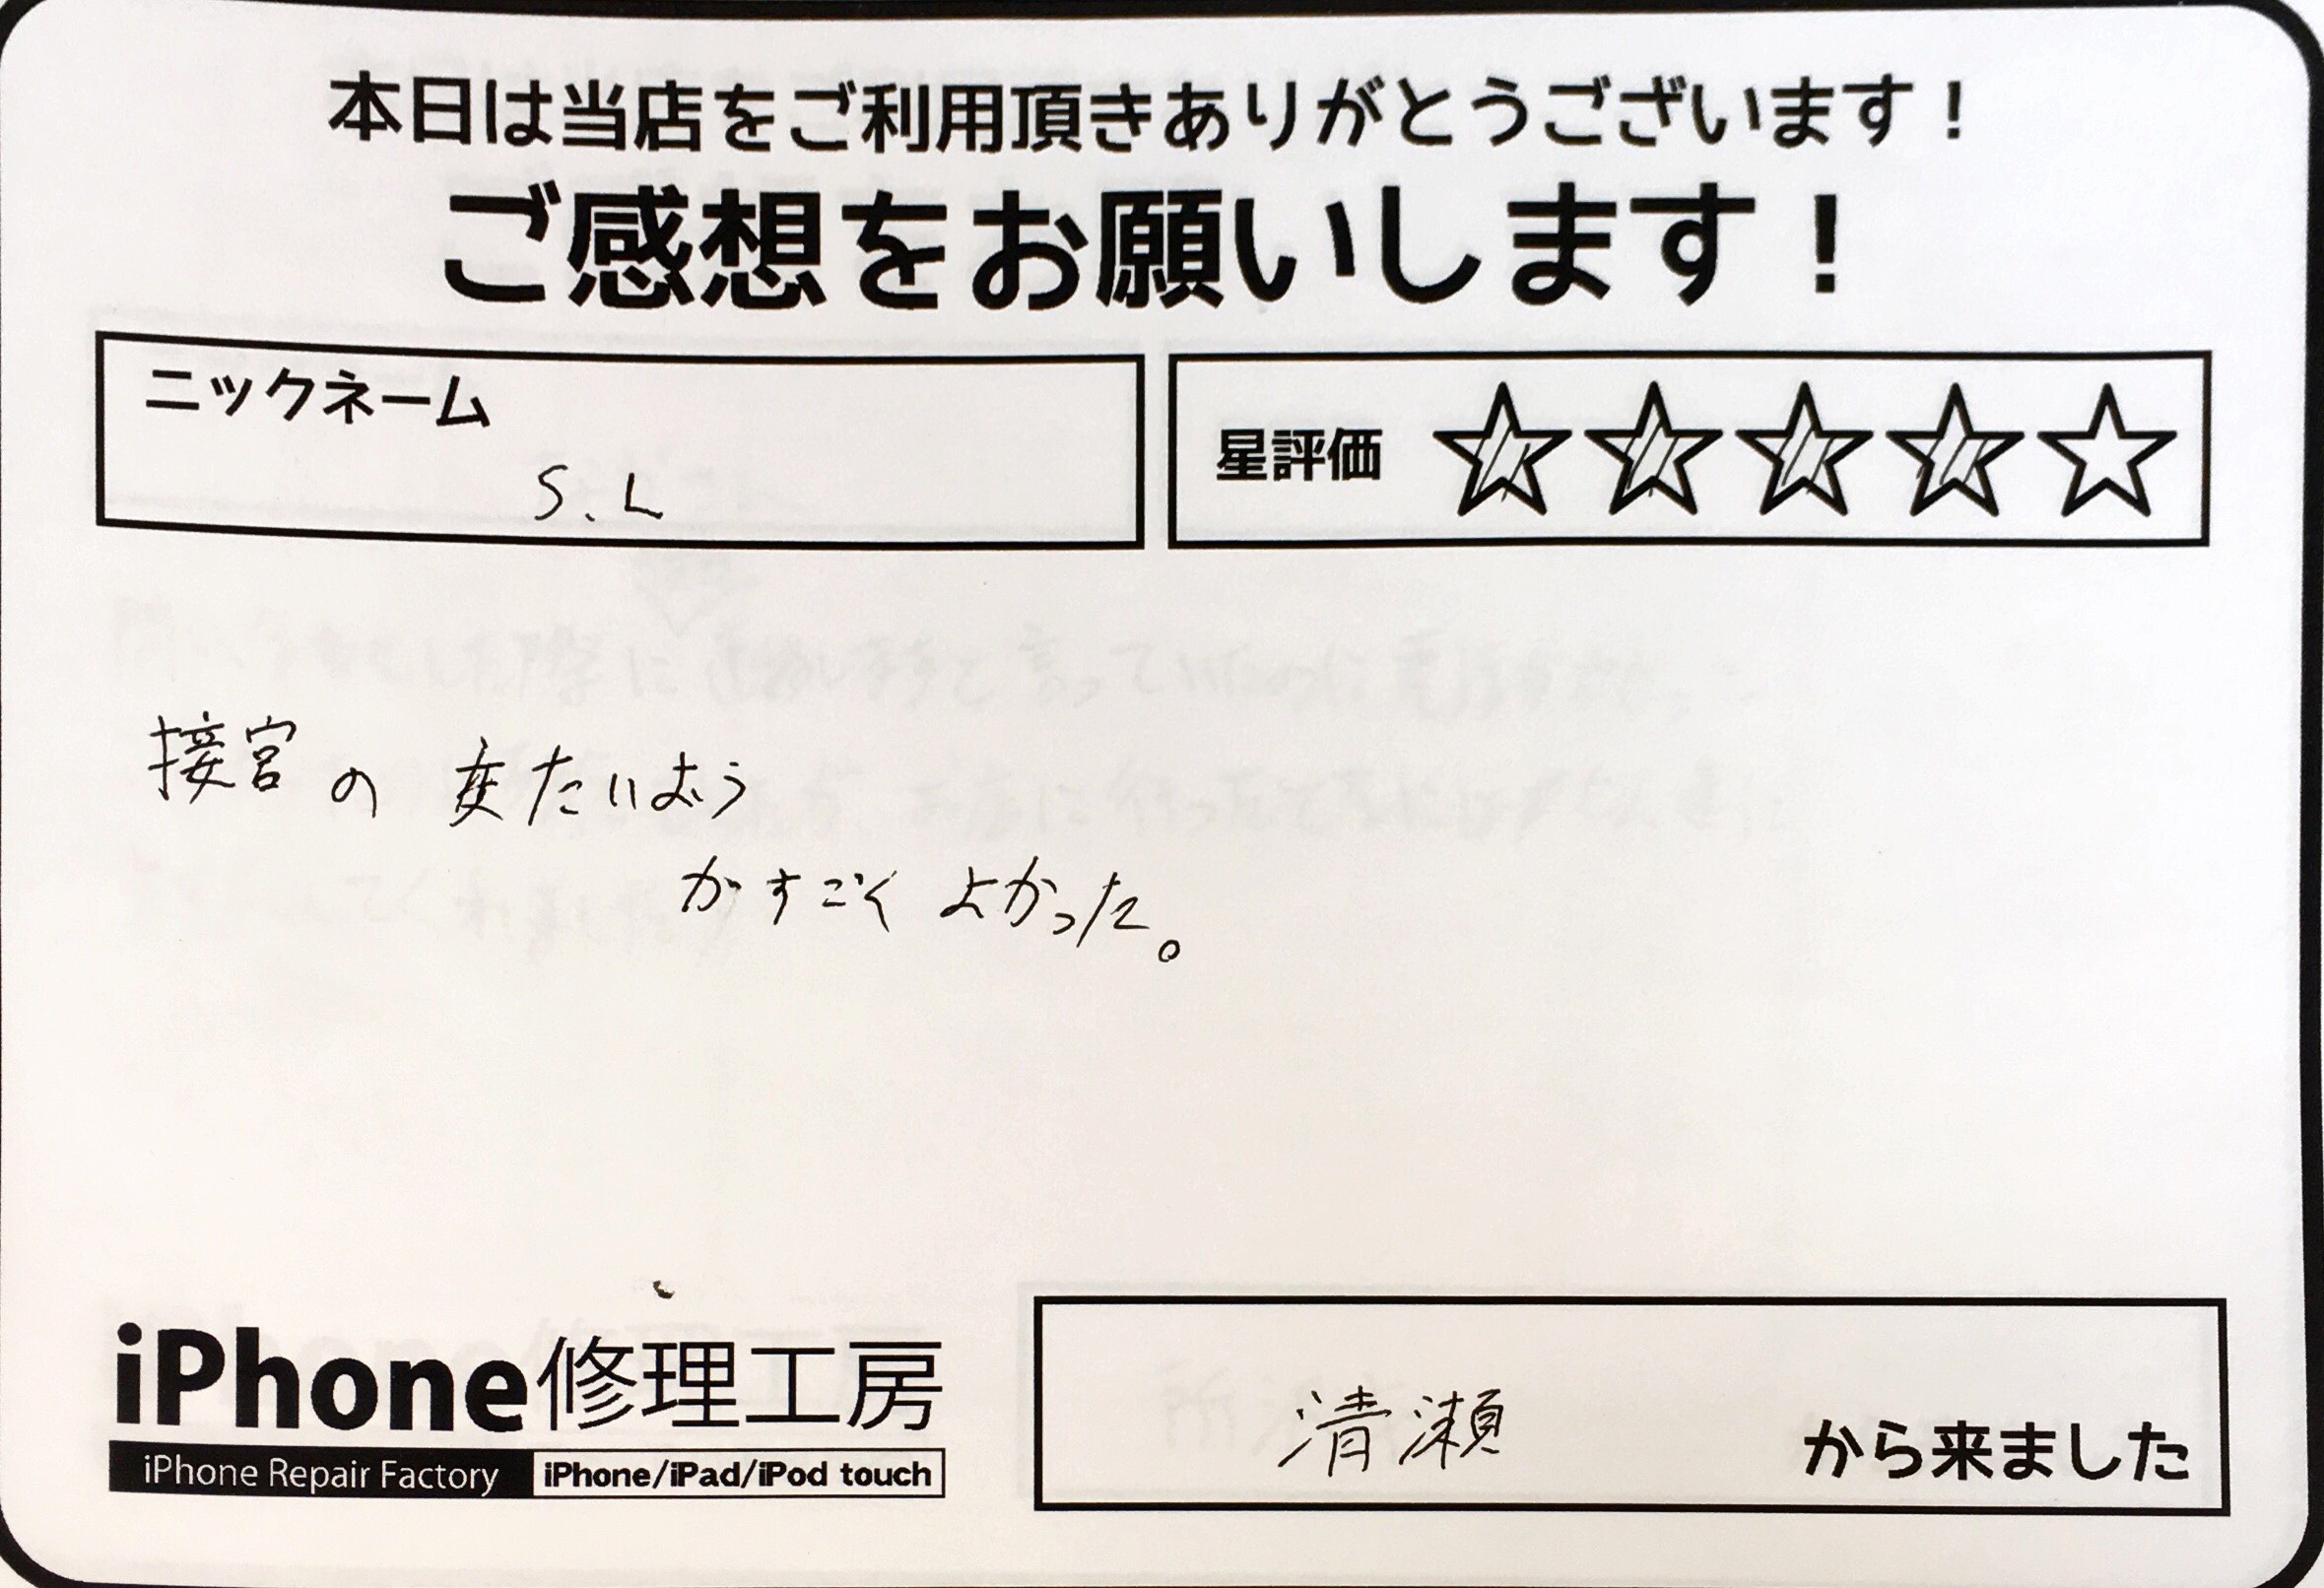 本日は当店をご利用頂きありがとうございます！
ご感想をお願いします！
ニックネーム
S.L
星評価 ☆☆☆☆☆
接宮の たいおう
がすごく よかった。
iPhone修理工房
iPhone Repair Factory iPhone/iPad/iPod touch
清瀬 から来ました